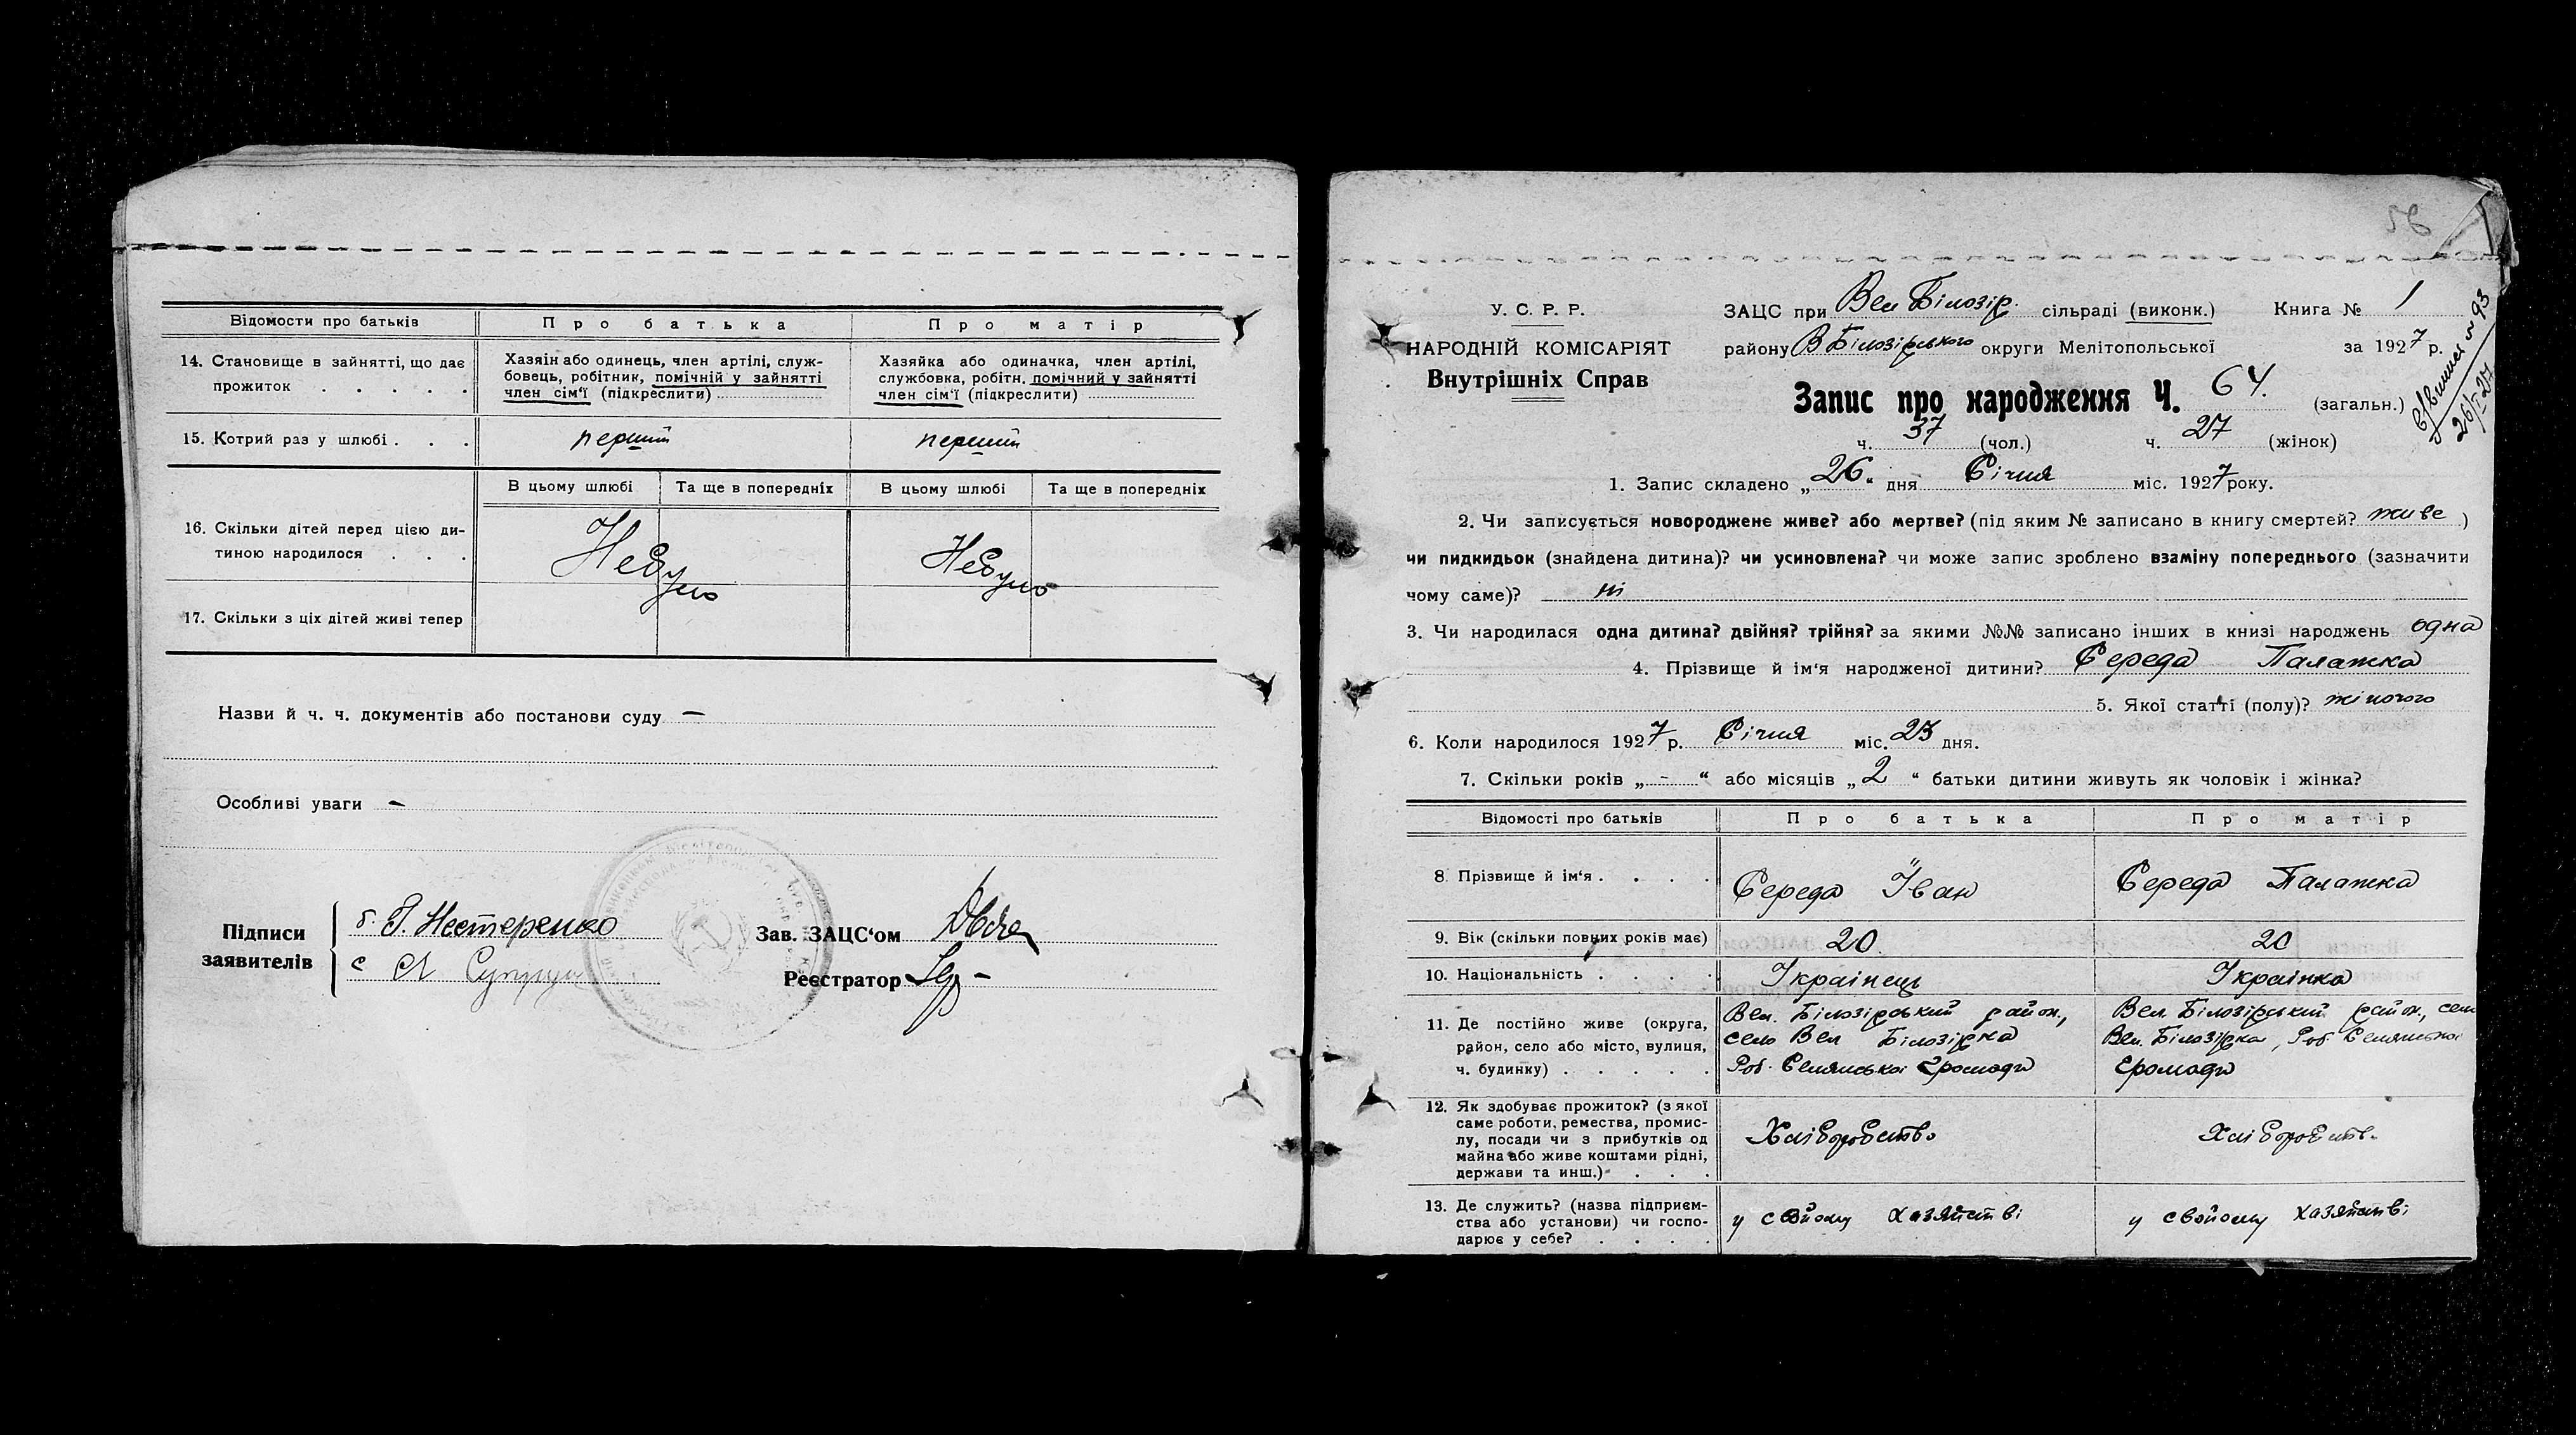 Відомости про батьків
Про батька
Про матір
14. Становище в зайнятті, що дає прожиток . . . . .
Хазяїн або одинець, член артілі, служ-
бовець, робітник, помічній у зайнятті
член сім'ї (підкреслити)
Хазяйка або одиначка, член артілі,
службовка, робітн. помічний у зайнятті
член сім'ї (підкреслити)
15. Котрий раз у шлюбі . . .
перший
перший
В цьому шлюбі
Та ще в попередніх
В цьому шлюбі
Та ще в попередніх
16. Скільки дітей перед цією ди-
тиною народилося . . .
Небуло
Небуло
17. Скільки з ціх дітей живі тепер
Назви й ч. ч. документів або постанови суду —
Особливі уваги —
Підписи
заявителів
б. І. Нестеренко
с Супрун
Зав. ЗАЦС'ом
Реєстратор
56
У. С. Р. Р.
НАРОДНІЙ КОМІСАРІЯТ
Внутрішніх Справ
ЗАЦС при Вел Білозір. сільраді (виконк.)
Книга № 1
району В Білозірського округи Мелітопольської
за 1927 р.
№ 93
26/I-27
Запис про народження Ч. 64. (загальн.)
ч. 37 (чол.) ч. 27 (жінок)
1. Запис складено „26“ дня Січня міс. 1927 року.
2. Чи записується новороджене живе? або мертве? (під яким № записано в книгу смертей? живе )
чи пидкидьок (знайдена дитина)? чи усиновлена? чи може запис зроблено взаміну попереднього (зазначити
чому саме)? ні
3. Чи народилася одна дитина? двійня? трійня? за якими №№ записано інших в книзі народжень одна
4. Прізвище й ім'я народженої дитини? Середа Палажка
5. Якої статті (полу)? жіночого
6. Коли народилося 1927 р. Січня міс. 23 дня.
7. Скільки років „-“ або місяців „2“ батьки дитини живуть як чоловік і жінка?
Відомості про батьків
Про батька
Про матір
8. Прізвище й ім'я . . . .
Середа Іван
Середа Палажка
9. Вік (скільки повних років має)
20.
20
10. Національність . . . .
Українець
Українка
11. Де постійно живе (округа,
район, село або місто, вулиця,
ч. будинку) . . . . .
Вел. Білозірський район.,
село Вел Білозірка
Роб. Селянської Громади
Вел. Білозірський район., село
Вел. Білозірка, Роб Селянської
Громади
12. Як здобуває прожиток? (з якої
саме роботи, ремества, промис-
лу, посади чи з прибутків од
майна або живе коштами рідні,
держави та инш.) . . .
Хліборобство
Хліборобств.
13. Де служить? (назва підприєм-
ства або установи) чи госпо-
дарює у себе? . . . .
у свойому хазяйстві
у свойому хазяйстві